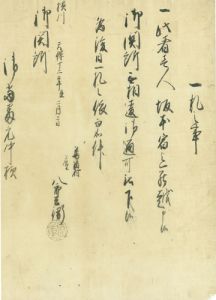 一札之事
一 此者壱人 坂本宿迄罷越申候
御関所無相違御通可被下候
為後日一札仍如件
天保十三年 二月
八郎兵衛
横川
御関所
御番衆中様